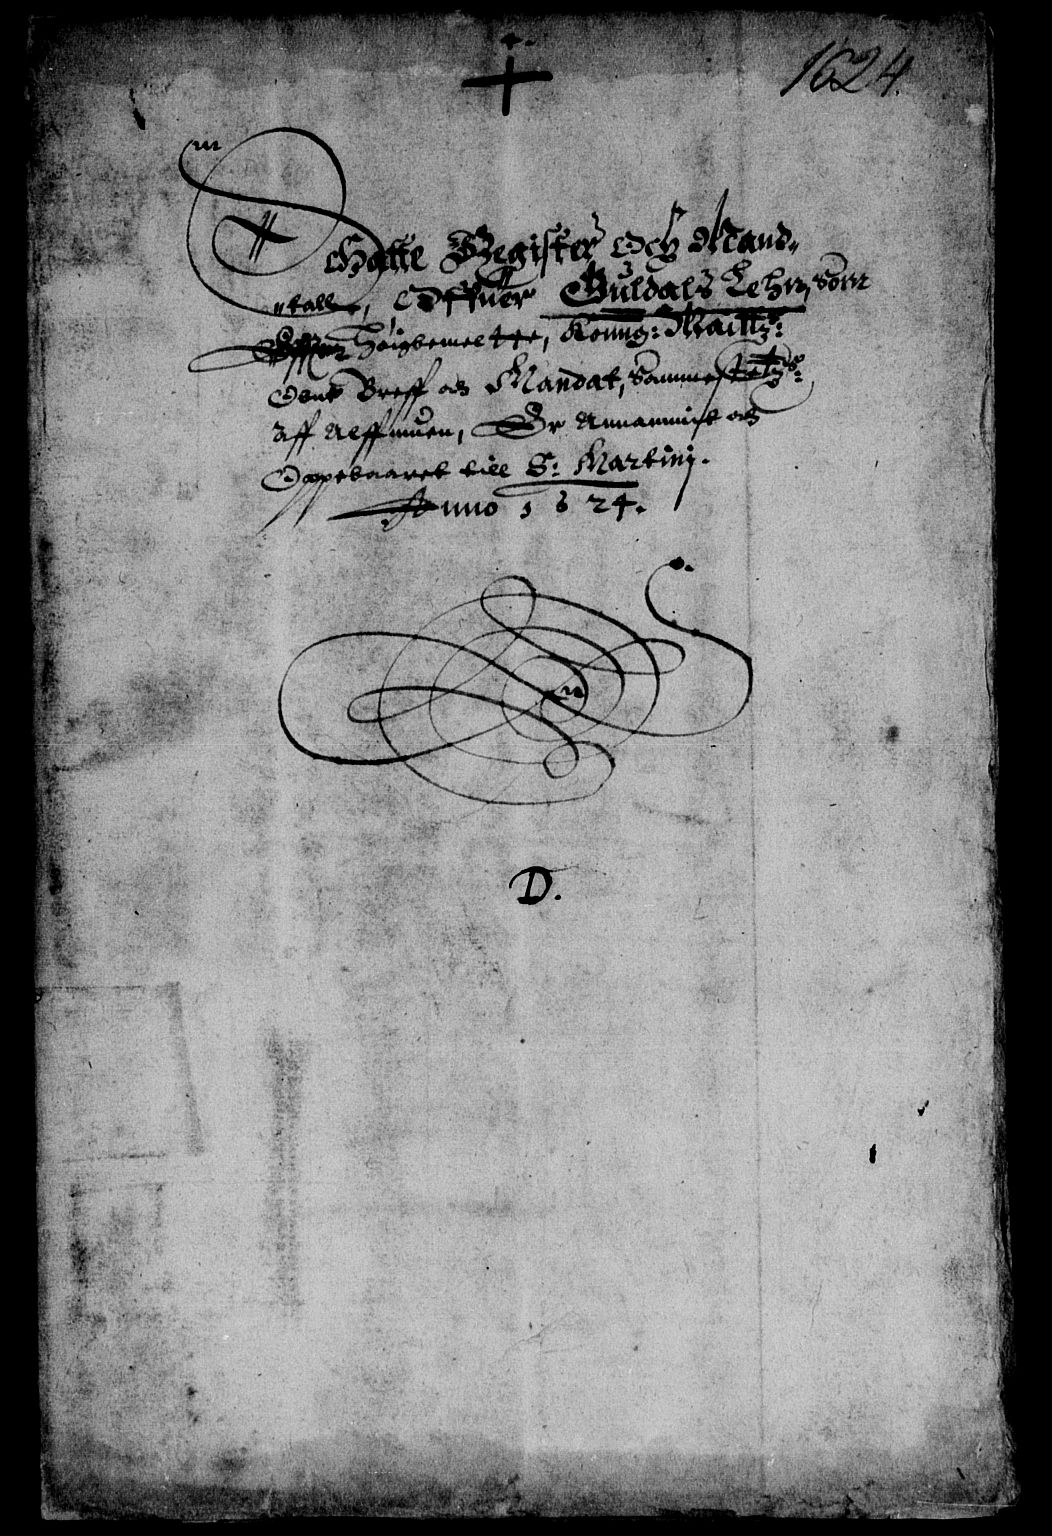 1624.
Schatte Register Och Mand-
tall, Offuer Guldals Lehn, som
Effter Høigbemeltte, Konng: Maÿttz:
Obne Breff och Mandat, samme
Aff Alfmuen, Er Annammit och
Oppebaaret till S: Martinj.
Anno 1624.
D.